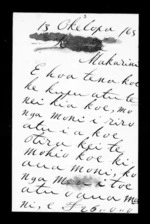 13 Oketopa /63
Makarini
E hoa tena koe
he kupu atu te
nei kia koe, mo
nga moni i riro
atu i a koe,
otira kei te
mohio koe ki
aua moni, ko
nga moni i toe
atu i aua mo
ni, e